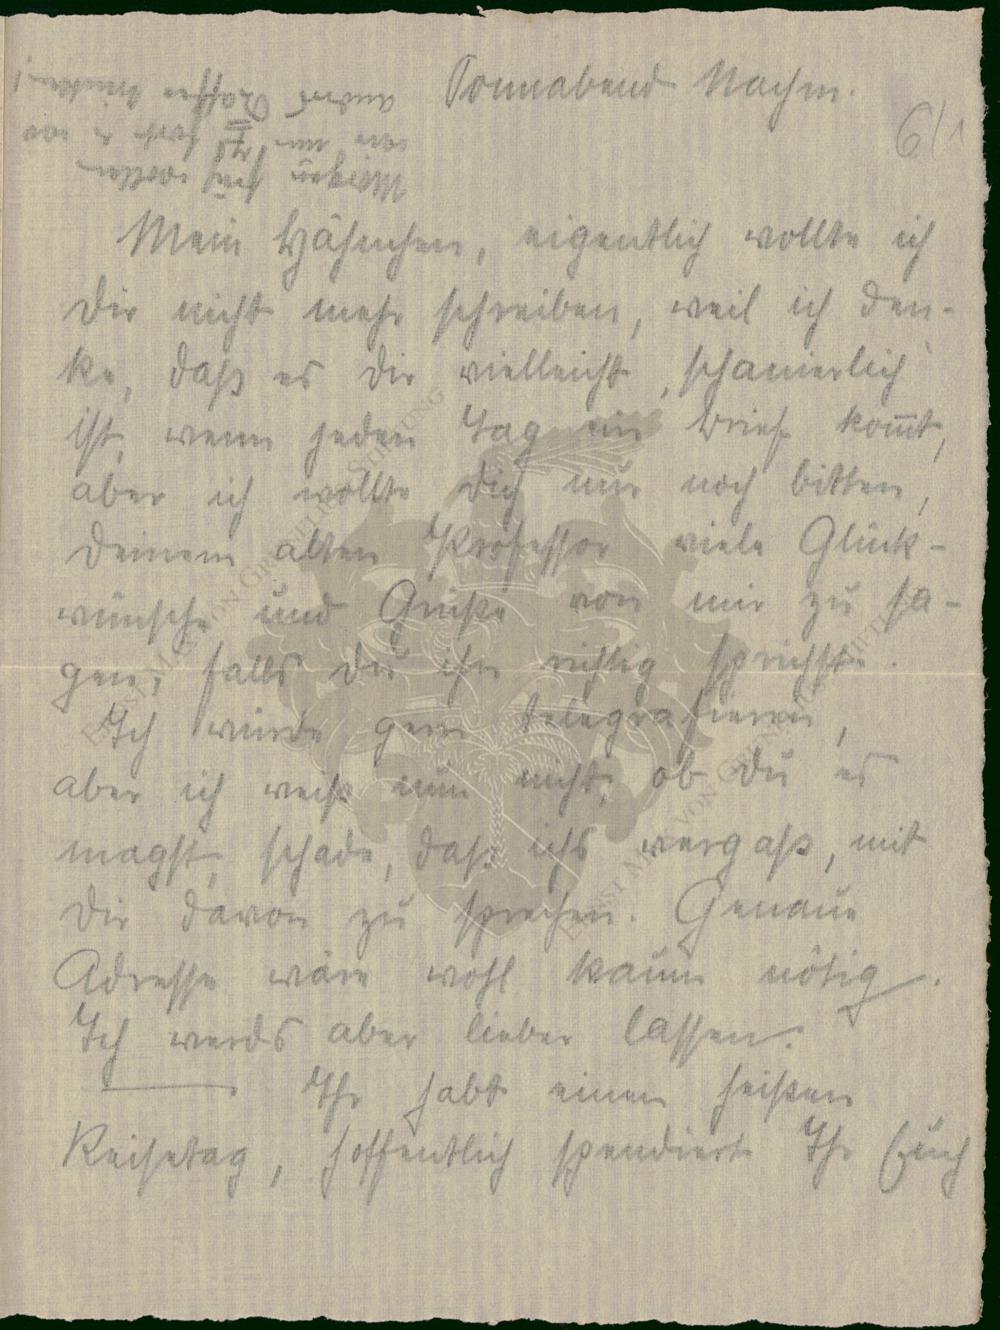 Sonnabend Nachm.
6/1
Morgen früh wollen
wir um fort u wo
anders Kaffee trinken!
Mein Hähnchen, eigentlich wollte ich
Dir nicht mehr schreiben, weil ich den-
ke, daß es Dir vielleicht "schanierlich"
ist, wenn jeden Tag ein Brief kom̅t,
aber ich wollte Dich nur noch bitten,
Deinem alten Professor viele Glück-
wünsche und Grüße von mir zu sa-
gen, falls Du ihn richtig sprichst.
Ich würde gern telegrafieren,
aber ich weiß nun nicht, ob Du es
magst, schade, daß ichs vergaß, mit
Dir davon zu sprechen. Genaue
Adresse wäre wohl kaum nötig.
Ich werds aber lieber lassen.
Ihr habt einen heißen
Reisetag, hoffentlich spendiert Ihr Euch
ERNST MAX VON GRUNELIUS-STIFTUNG
ERNST MAX VON GRUNELIUS-STIFTUNG